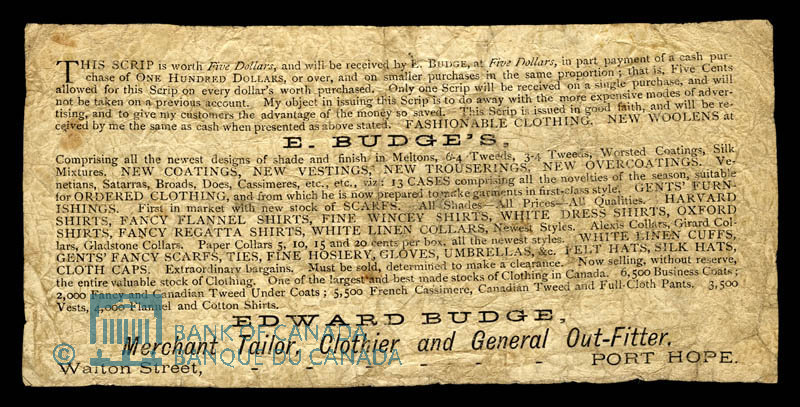 THIS SCRIP is worth Five Dollars, and will be received by E. BUDGE, at Five Dollars, in part payment of a cash pur-
chase of ONE HUNDRED DOLLARS, or over, and on smaller purchases in the same proportion; that is, Five Cents
allowed for this Scrip on every dollar's worth purchased. Only one Scrip will be received on a single purchase, and will
not be taken on a previous account. My object in issuing this Scrip is to do away with the more expensive modes of adver-
tising, and to give my customers the advantage of the money so saved. This Scrip is issued in good faith, and will be re-
ceived by me the same as cash when presented as above stated. FASHIONABLE CLOTHING. NEW WOOLENS at
E. BUDGE'S,
Comprising all the newest designs of shade and finish in Meltons, 6-4 Tweeds, 3-4 Tweeds, Worsted Coatings, Silk
Mixtures. NEW COATINGS, NEW VESTINGS, NEW TROUSERINGS, NEW OVERCOATINGS. Ve-
netians, Satarras, Broads, Does, Cassimeres, etc., etc., viz: 13 CASES comprising all the novelties of the season, suitable
for ORDERED CLOTHING, and from which he is now prepared to make garments in first-class style. GENTS' FURN-
ISHINGS. First in market with new stock of SCARFS. All Shades—All Prices—All Qualities. HARVARD
SHIRTS, FANCY FLANNEL SHIRTS, FINE WINCEY SHIRTS, WHITE DRESS SHIRTS, OXFORD
SHIRTS, FANCY REGATTA SHIRTS, WHITE LINEN COLLARS, Newest Styles. Alexis Collars, Girard Col-
lars, Gladstone Collars. Paper Collars 5, 10, 15 and 20 cents per box, all the newest styles. WHITE LINEN CUFFS,
GENTS' FANCY SCARFS, TIES, FINE HOSIERY, GLOVES, UMBRELLAS, &c. FELT HATS, SILK HATS,
CLOTH CAPS. Extraordinary bargains. Must be sold, determined to make a clearance. Now selling, without reserve,
the entire valuable stock of Clothing. One of the largest and best made stocks of Clothing in Canada. 6,500 Business Coats;
2,000 Fancy and Canadian Tweed Under Coats; 5,500 French Cassimere, Canadian Tweed and Full-Cloth Pants. 3,500
Vests, 4,000 Flannel and Cotton Shirts.
EDWARD BUDGE,
Merchant Tailor, Clothier and General Out-Fitter.
Walton Street, - - - - - - - PORT HOPE.
© BANK OF CANADA
BANQUE DU CANADA